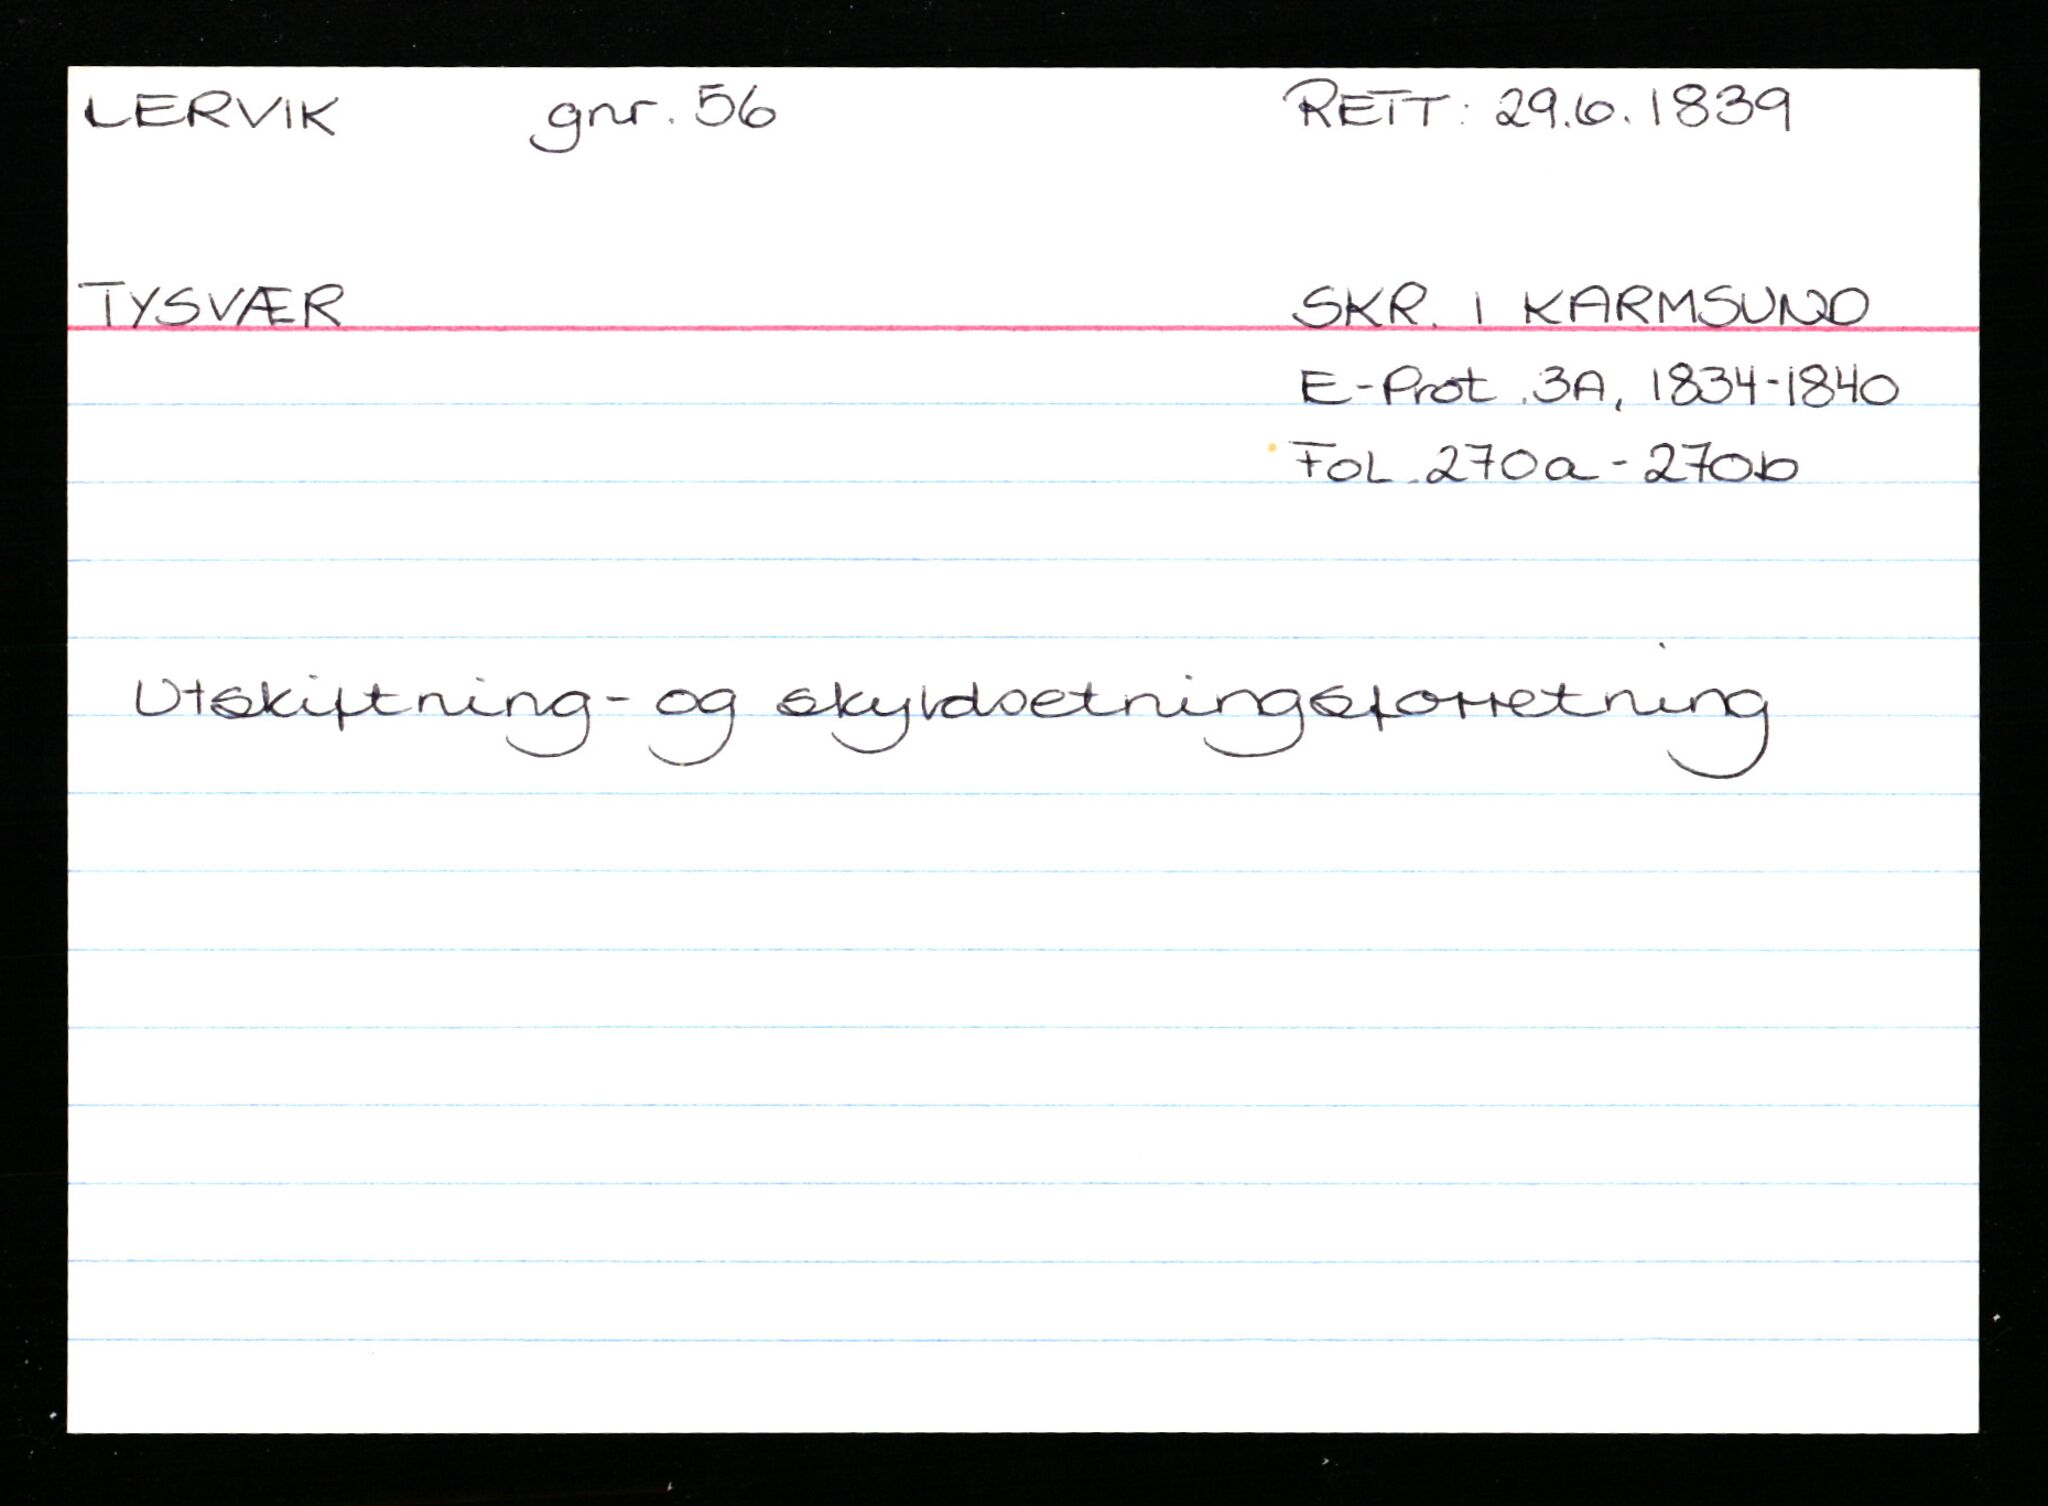 LERVIK gnr. 56 RETT: 29.6.1839
TYSVÆR SKR. I KARMSUND
E-Prot. 3A, 1834-1840
Fol. 270a - 270b
Utskiftning- og skyldsetningsforretning